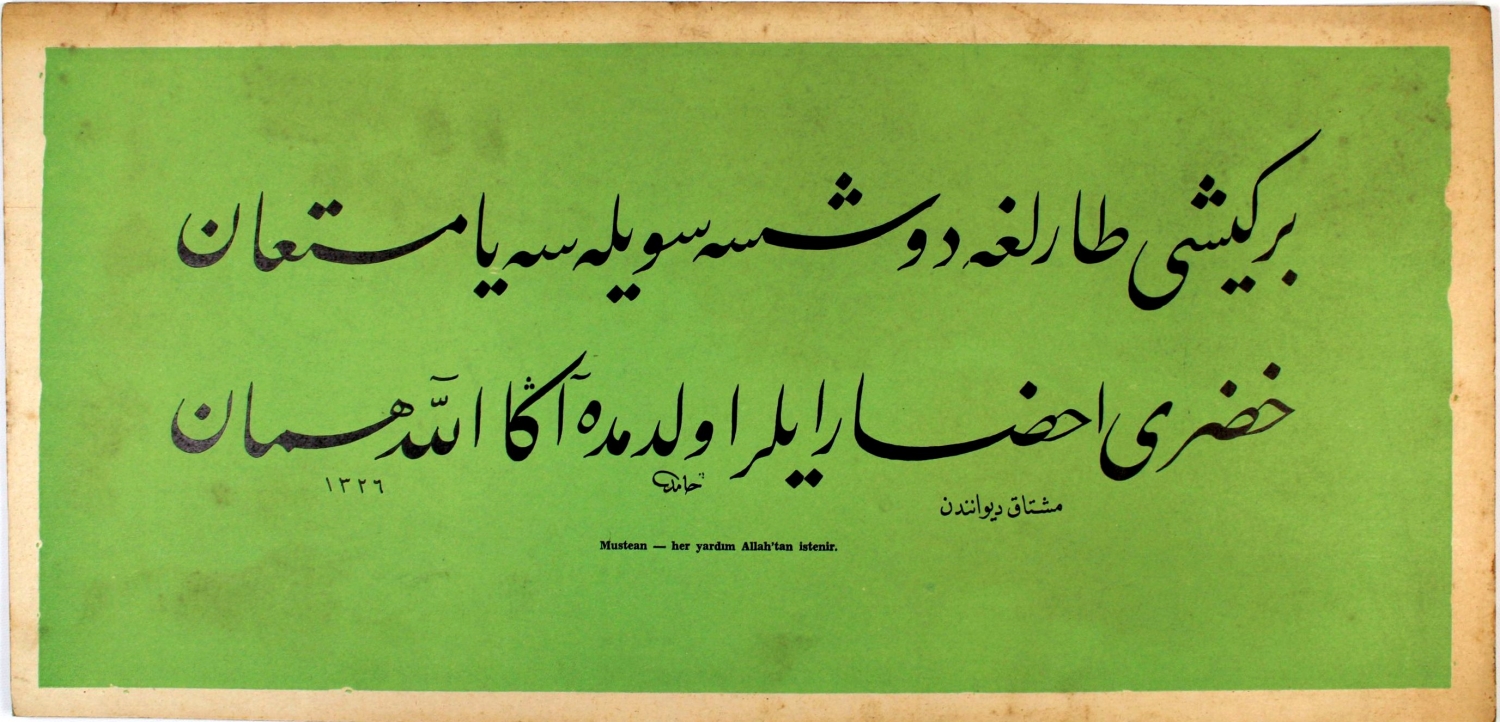 بر كيشى طارلغه دوشسه سويله سه يا مستعان
خضرى احضار ايلر اولدمده آڭا الله همان
مشتاق ديوانندن
حامد
١٣٢٦
Mustean — her yardım Allah'tan istenir.